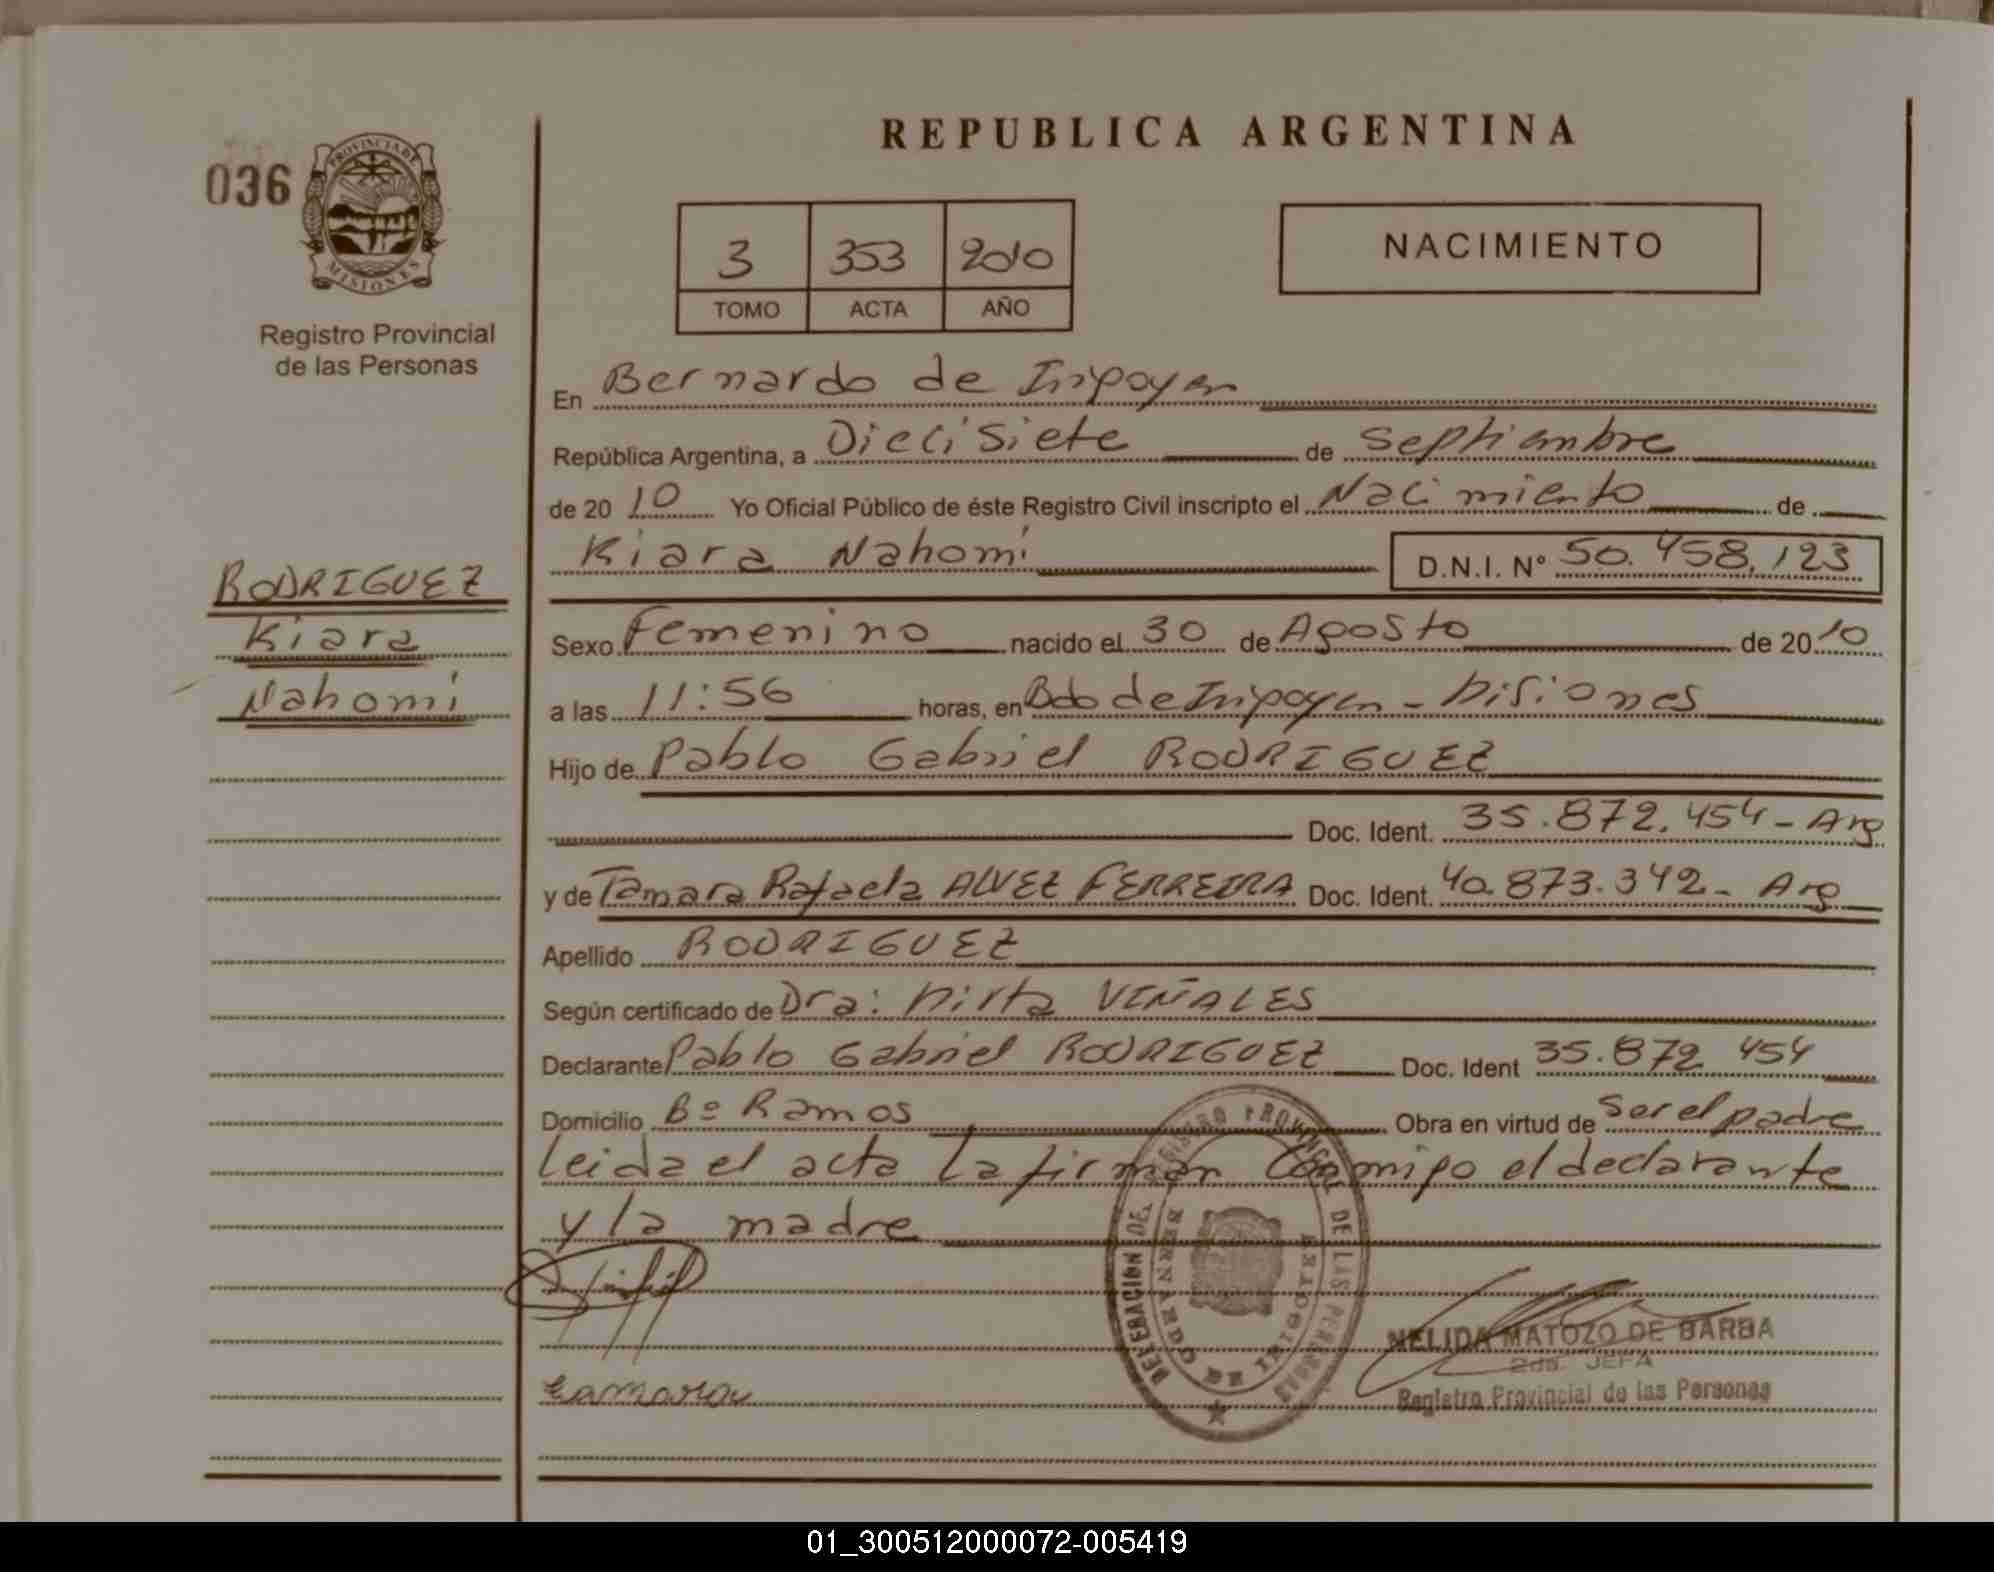 REPUBLICA ARGENTINA
036
PROVINCIA DE
MISIONES
Registro Provincial
de las Personas
3 353 2010
TOMO ACTA AÑO
NACIMIENTO
En Bernardo de Irigoyen
República Argentina, a Diecisiete de Septiembre
de 20 10 Yo Oficial Público de éste Registro Civil inscripto el Nacimiento de
Kiara Nahomi D.N.I. Nº 50.458.123
RODRIGUEZ
Kiara
Nahomi
Sexo Femenino nacido el 30 de Agosto de 20 10
a las 11:56 horas, en Bdo de Irigoyen - Misiones
Hijo de Pablo Gabriel RODRIGUEZ
Doc. Ident. 35.872.454 - Arg
y de Tamara Rafaela ALVEZ FERREIRA Doc. Ident. 40.873.342 - Arg
Apellido RODRIGUEZ
Según certificado de Dra: Mirta VIÑALES
Declarante Pablo Gabriel RODRIGUEZ Doc. Ident 35.872 454
Domicilio Bº Ramos Obra en virtud de Ser el padre
Leida el acta La firman Conmigo el declarante
y la madre
DELEGACION DEL REGISTRO PROVINCIAL DE LAS PERSONAS
BERNARDO DE IRIGOYEN
NELIDA MATOZO DE BARBA
2da. JEFA
Registro Provincial de las Personas
tamara
01_300512000072-005419